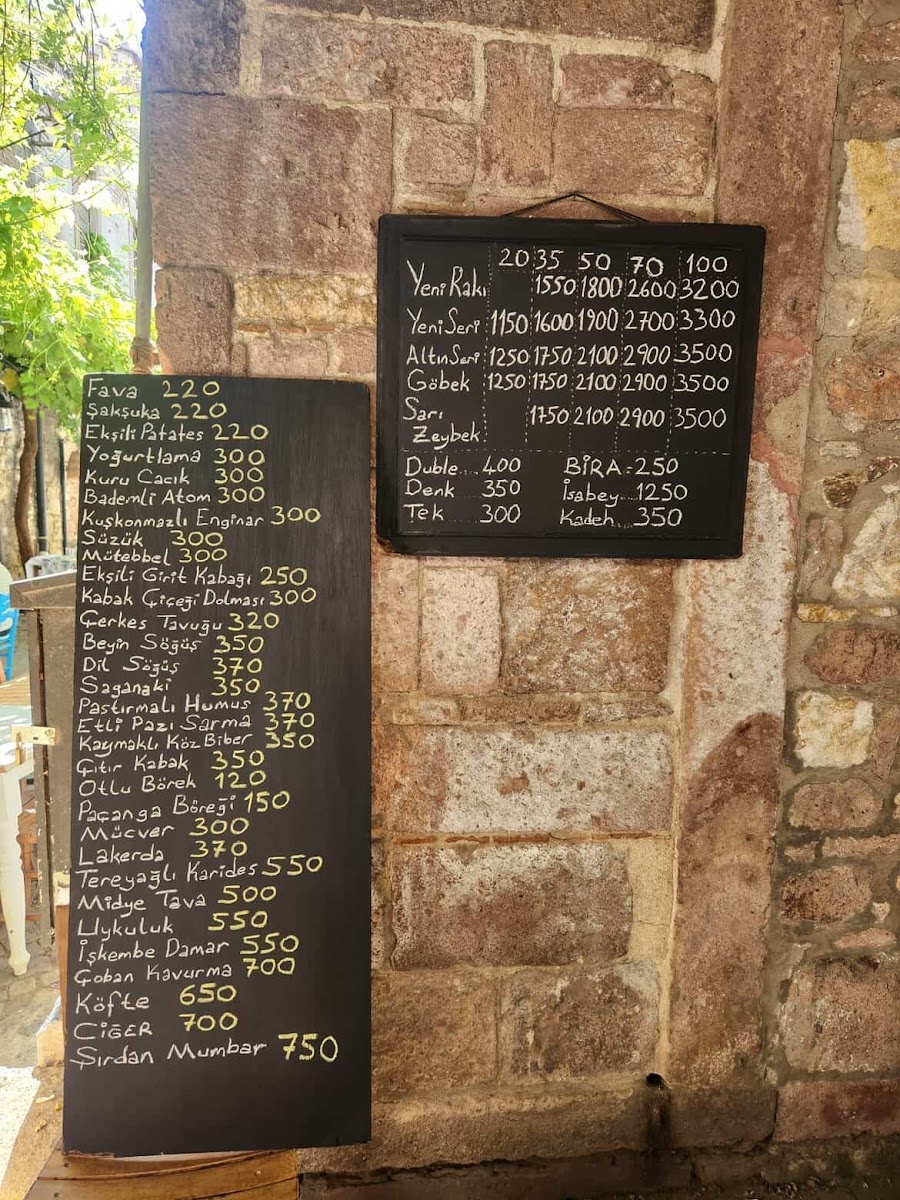 Fava 220
Şakşuka 220
Ekşili Patates 220
Yoğurtlama 300
Kuru Cacık 300
Bademli Atom 300
Kuşkonmazlı Enginar 300
Süzük 300
Mütebbel 300
Ekşili Girit Kabağı 250
Kabak Çiçeği Dolması 300
Çerkes Tavuğu 320
Beyin Söğüş 350
Dil Söğüş 370
Saganaki 350
Pastırmalı Humus 370
Etli Pazı Sarma 370
Kaymaklı Köz Biber 350
Çıtır Kabak 350
Otlu Börek 120
Paçanga Böreği 150
Mücver 300
Lakerda 370
Tereyağlı Karides 550
Midye Tava 500
Uykuluk 550
İşkembe Damar 550
Çoban Kavurma 700
Köfte 650
CİĞER 700
Şırdan Mumbar 750
20 35 50 70 100
Yeni Rakı 1550 1800 2600 3200
Yeni Seri 1150 1600 1900 2700 3300
Altın Seri 1250 1750 2100 2900 3500
Göbek 1250 1750 2100 2900 3500
Sarı 1750 2100 2900 3500
Zeybek
Duble... 400 BİRA = 250
Denk 350 İsabey... 1250
Tek ..... 300 Kadeh... 350